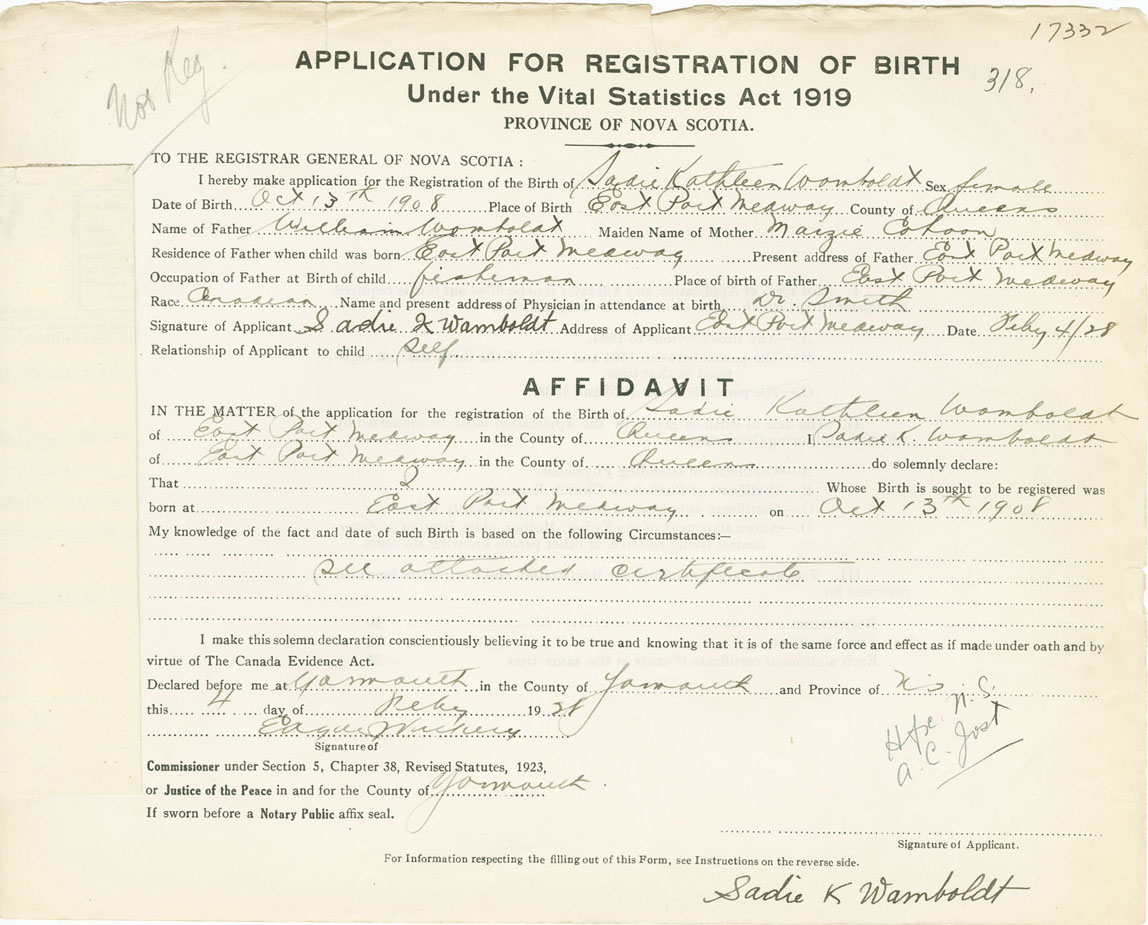 17332
Not Reg.
APPLICATION FOR REGISTRATION OF BIRTH
318.
Under the Vital Statistics Act 1919
PROVINCE OF NOVA SCOTIA.
TO THE REGISTRAR GENERAL OF NOVA SCOTIA :
I hereby make application for the Registration of the Birth of Sadie Kathleen Womboldt Sex female
Date of Birth Oct 13th 1908 Place of Birth East Port Medway County of Queens
Name of Father William Womboldt Maiden Name of Mother Maizie Cohoon
Residence of Father when child was born East Port Medway Present address of Father East Port Medway
Occupation of Father at Birth of child fisherman Place of birth of Father East Port Medway
Race Canadian Name and present address of Physician in attendance at birth Dr. Smith
Signature of Applicant Sadie K Wamboldt Address of Applicant East Port Medway Date Feby 4/28
Relationship of Applicant to child self.
AFFIDAVIT
IN THE MATTER of the application for the registration of the Birth of Sadie Kathleen Womboldt
of East Port Medway in the County of Queens I Sadie K. Wamboldt
of East Port Medway in the County of Queens do solemnly declare:
That I Whose Birth is sought to be registered was
born at East Port Medway on Oct 13th 1908
My knowledge of the fact and date of such Birth is based on the following Circumstances:—
See attached certificate
I make this solemn declaration conscientiously believing it to be true and knowing that it is of the same force and effect as if made under oath and by
virtue of The Canada Evidence Act.
Declared before me at Yarmouth in the County of Yarmouth and Province of N.S.
this 4 day of Feby 1928
Signature of
Hfx. N.S.
A. C. Jost
Commissioner under Section 5, Chapter 38, Revised Statutes, 1923,
or Justice of the Peace in and for the County of Yarmouth
If sworn before a Notary Public affix seal.
Signature of Applicant.
For Information respecting the filling out of this Form, see Instructions on the reverse side.
Sadie K Wamboldt